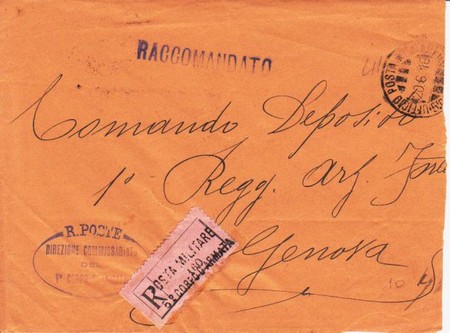 RACCOMANDATO
20.6.16
Comando Deposito
1º Regg. Art. Fort
Genova
R. POSTE
DIREZIONE COMMISSARIATO
DEL
1º CORPO
R
POSTA MILITARE
CORPO D'ARMATA